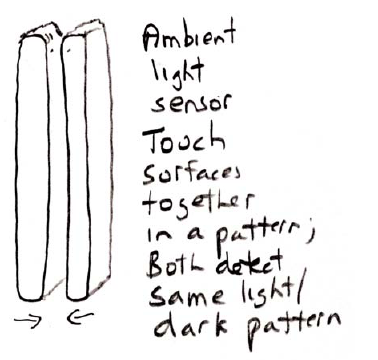 Ambient
light
sensor
Touch
surfaces
together
in a pattern;
Both detect
same light/
dark pattern